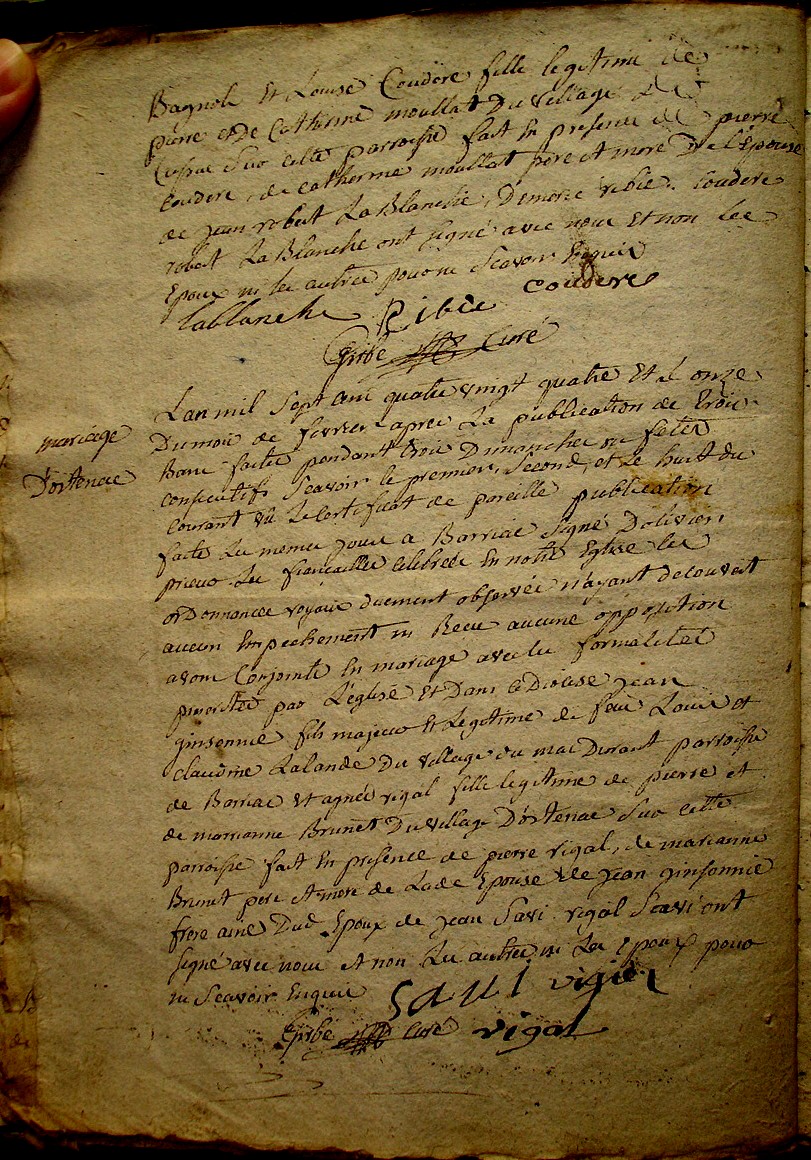 Bagnole Et Louise Coudere fille legitime de
pierre et de Catherine moullat Du village de
sur cette parroisse fait En presence de pierre
Coudere, de catherine moullat pere et mere De l'Epouse
de jean robert La Blanche, Ribie. Coudere
robert La Blanche ont signé avec nous Et non les
Epoux ni les autres pour ne Scavoir Enquis
Lablanche Ribie couderc
Gribe Curé
Lan mil Sept cent quatre vingt quatre Et le onze
mariage
D'ostenac
Du mois de fevrier apres La publication de trois
Bans faites pendant trois Dimanches ou fetes
consecutifs Scavoir le premier, Second, et le huit du
courant vû Le Certificat de pareille publication
faite Les memes jours a Barriac Signé Dolivier
prieur Les fiancailles celebrées En notre Eglise les
ordonnances royaux duement observées n'ayant decouvert
aucun Empechement ni Recu aucune opposition
avons Conjoints En mariage avec les formalites
prescrites par L'Eglise Et Dans ce Diocese jean
ginsonnie fils majeur Et Legitime de feu Louis et
claudine Lalande Du village du mas Durant parroisse
de Barriac Et agnès rigal fille legitime de pierre et
de marianne Brunet Du village D'ostenac Sur cette
parroisse fait En presence de pierre rigal, de marianne
Brunet pere et mere de Lade Epouse de jean ginsonnie
frere ainé Dud Epoux de jean Savi rigal Savi ont
signé avec nous et non Les autres ni Les Epoux pour
ne Scavoir Enquis SAUI vigier
Gribe Curé vigal